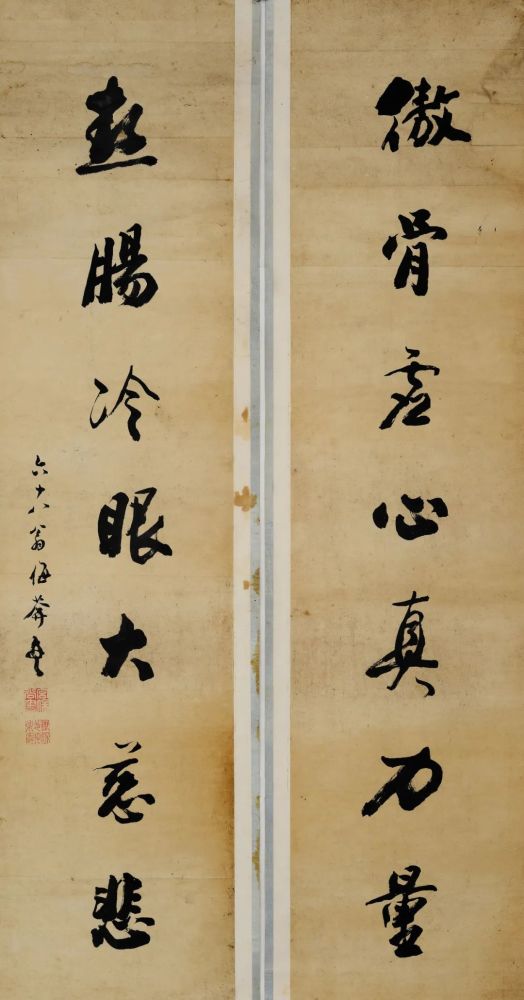 傲骨虛心真力量
熱腸冷眼大慈悲
六十八翁